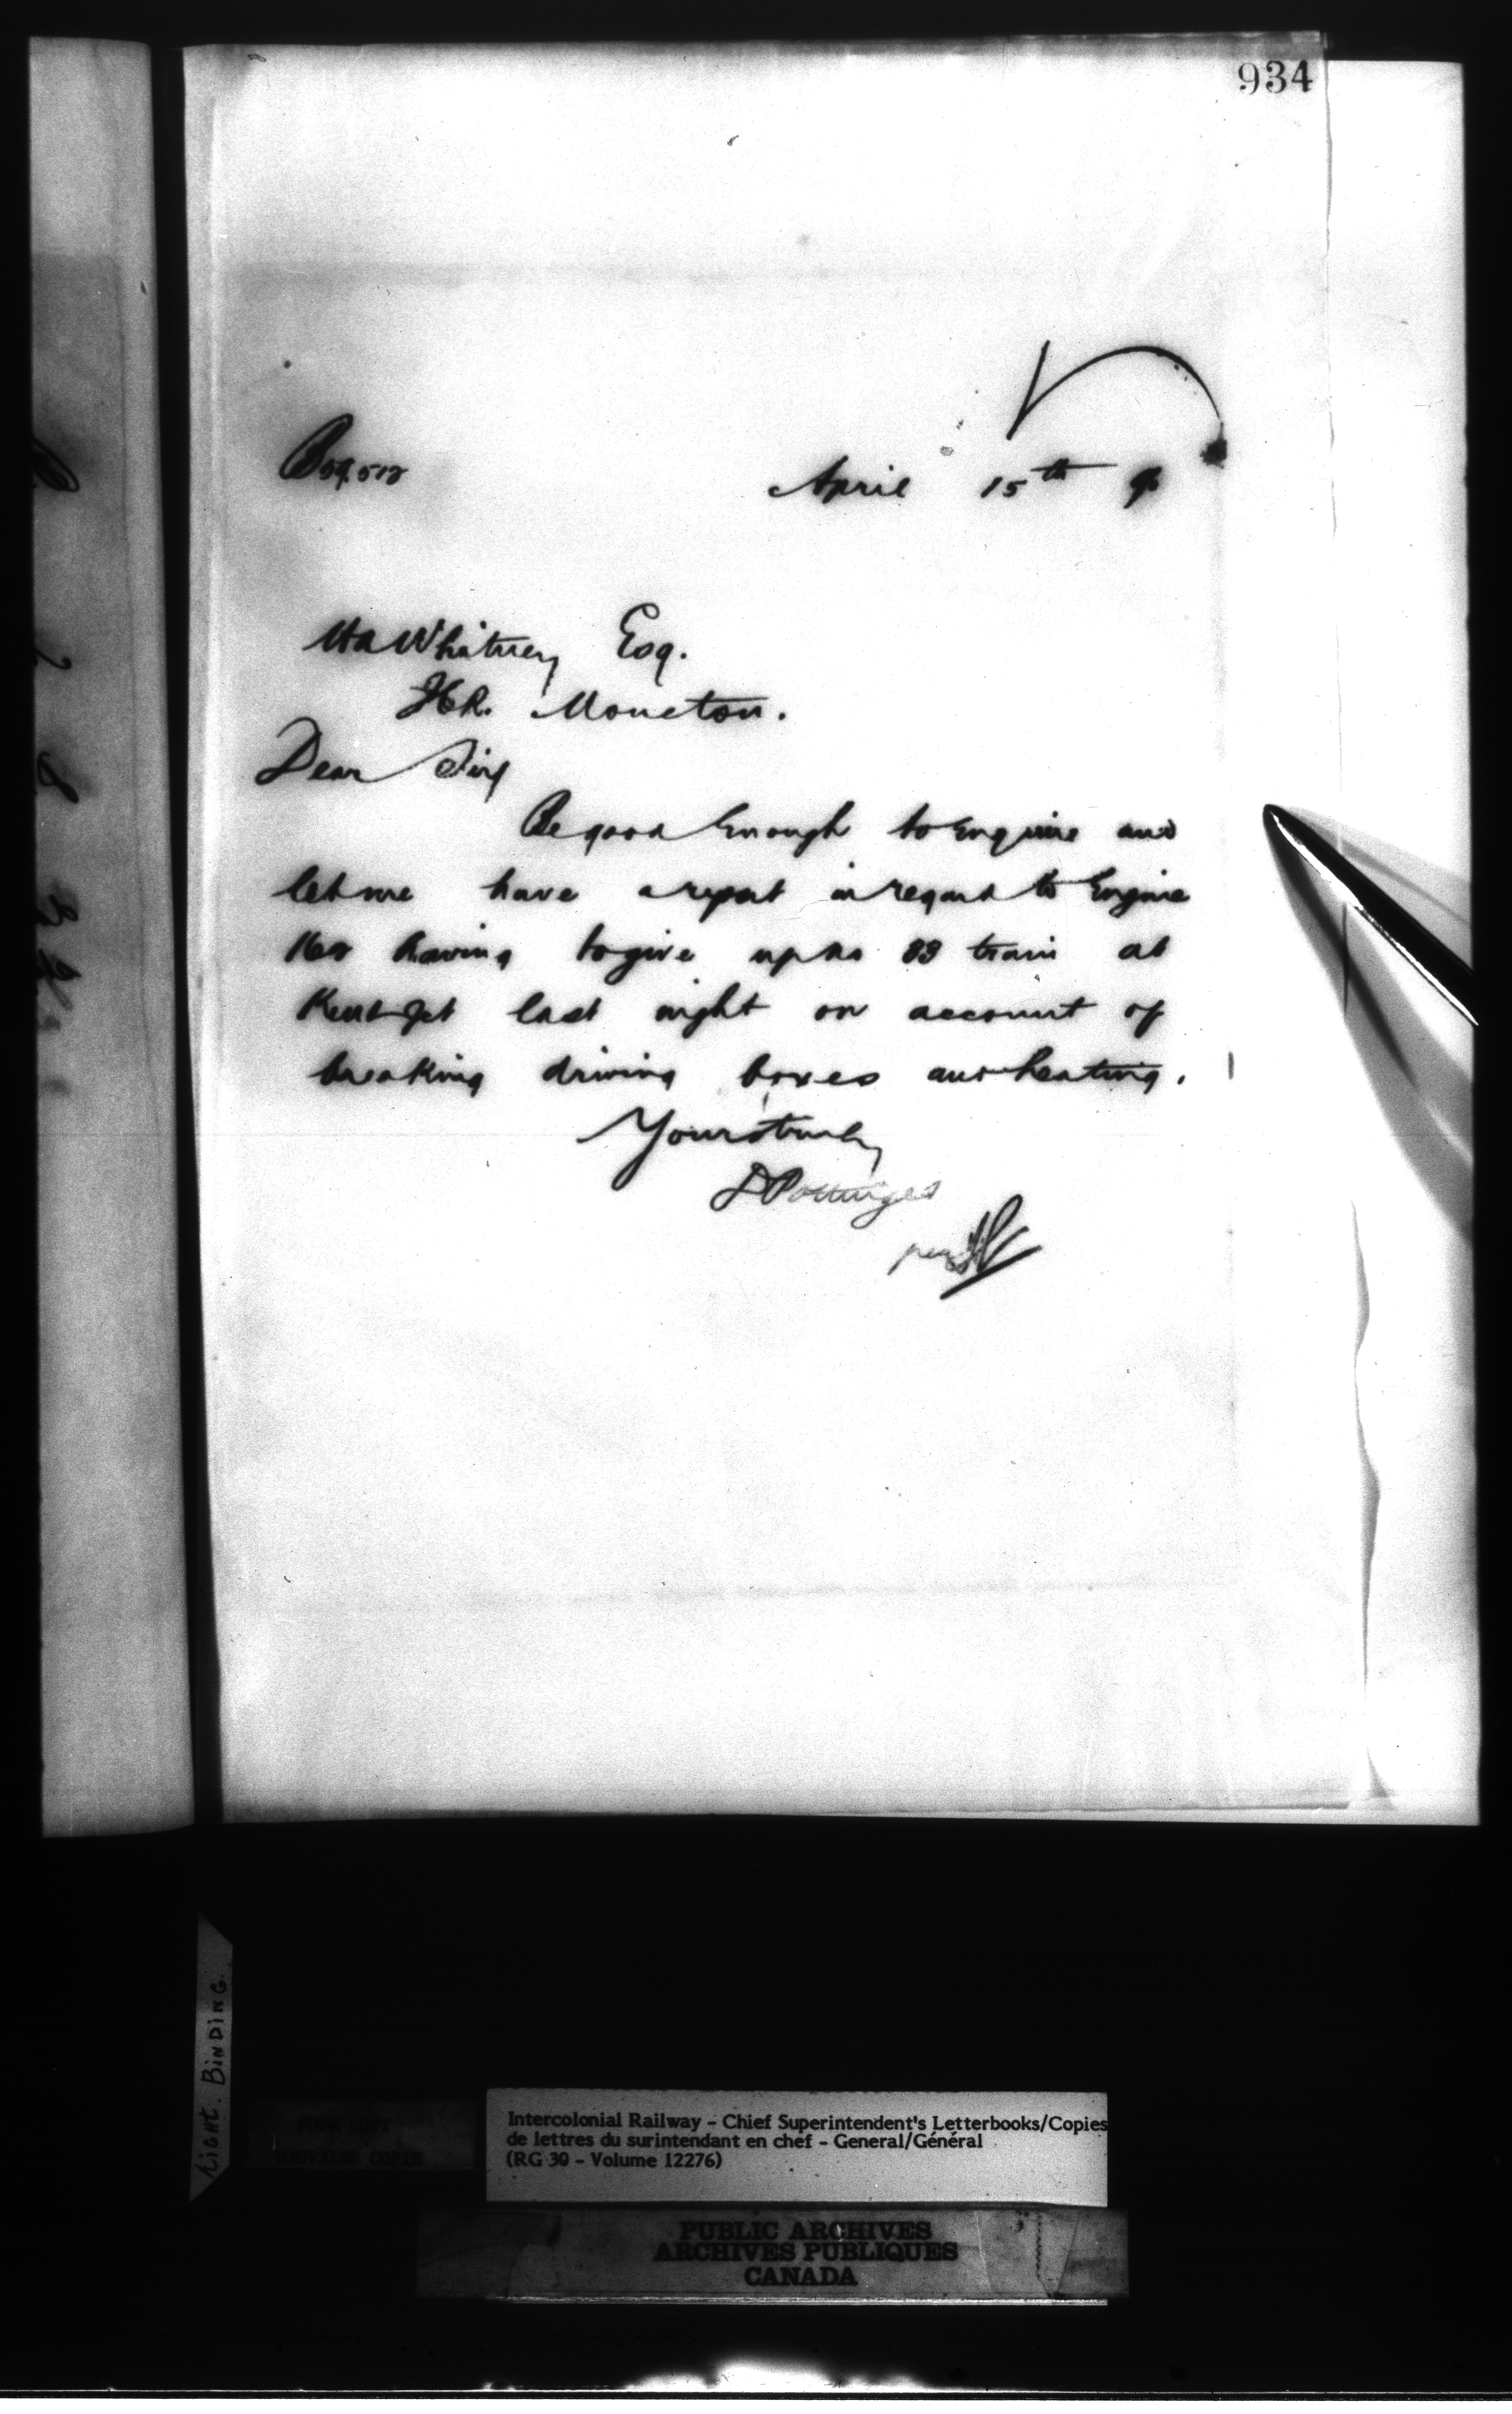 934
April 15th 90
Whitney Esq.
Moncton.
Dear Sir
Be good enough to enquire and
let me have a report in regard to Engine
having to give up no 33 train at
Kent Jct last night on account of
breaking driving boxes and heating.
Yours truly
D Pottinger
per
LIGHT. BINDING.
Intercolonial Railway - Chief Superintendent's Letterbooks/Copies
de lettres du surintendant en chef - General/Général
(RG 30 - Volume 12276)
PUBLIC ARCHIVES
ARCHIVES PUBLIQUES
CANADA